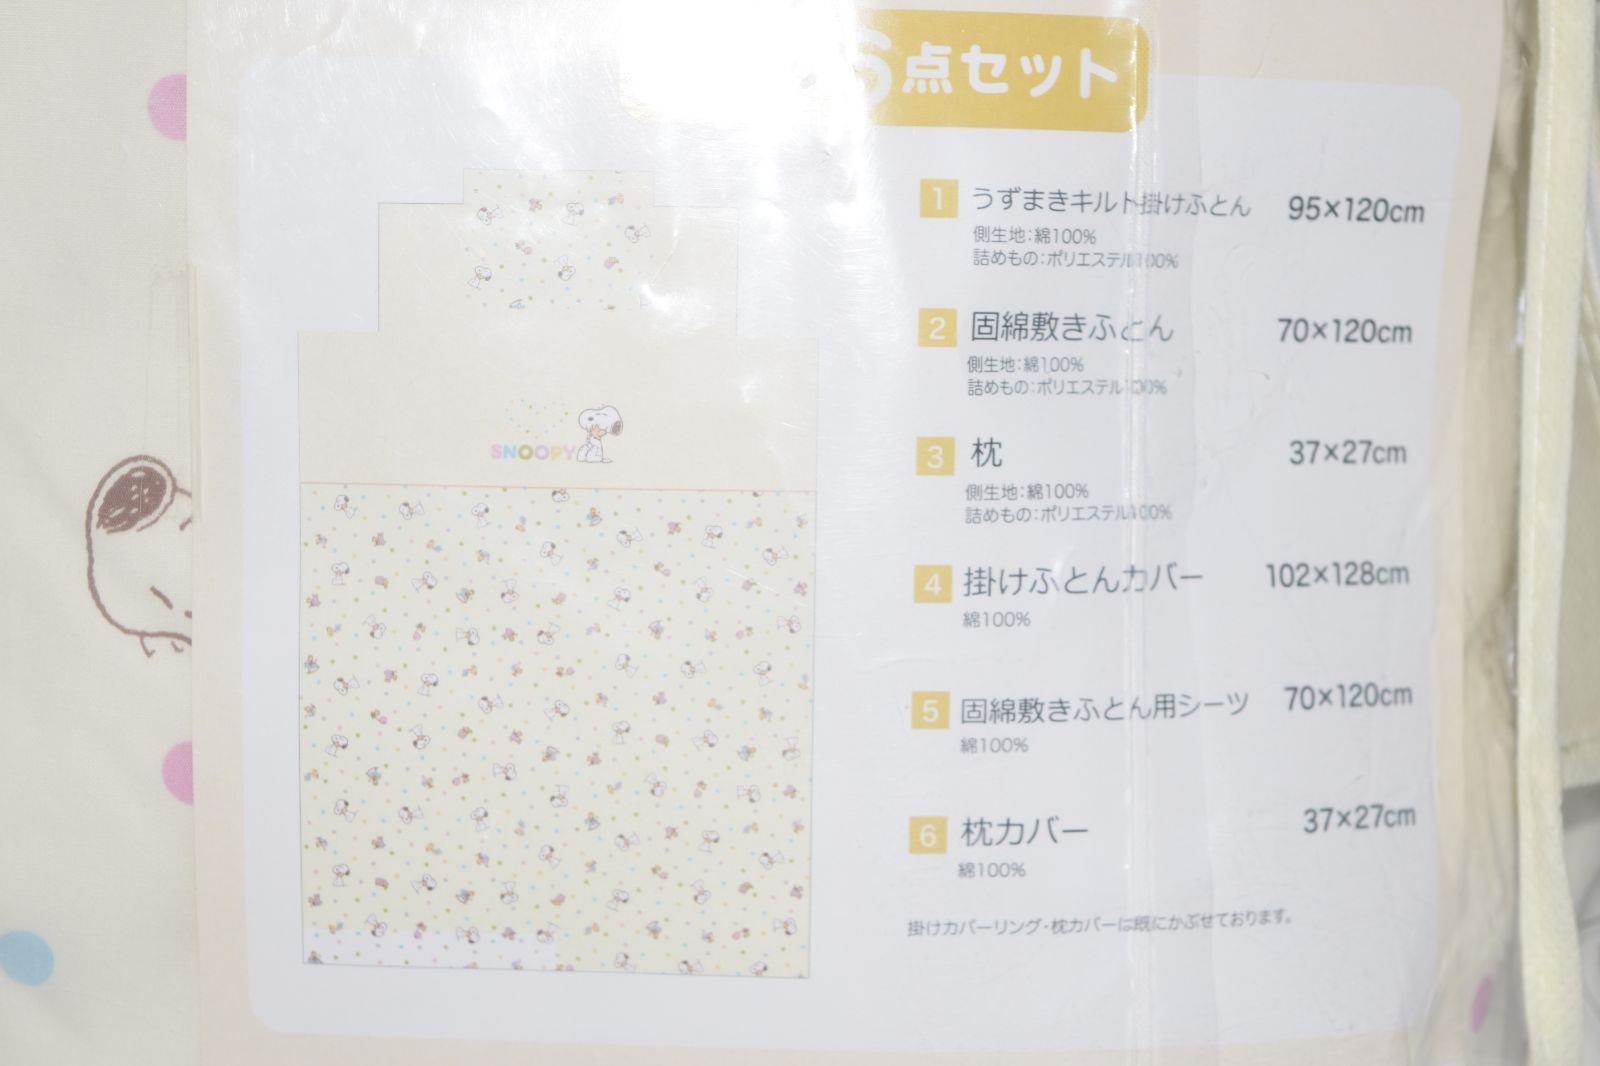 6点セット
1 うずまきキルト掛けふとん 95×120cm
側生地：綿100%
詰めもの：ポリエステル100%
2 固綿敷きふとん 70×120cm
側生地：綿100%
詰めもの：ポリエステル100%
3 枕 37×27cm
側生地：綿100%
詰めもの：ポリエステル100%
4 掛けふとんカバー 102×128cm
綿100%
5 固綿敷きふとん用シーツ 70×120cm
綿100%
6 枕カバー 37×27cm
綿100%
掛けカバーリング・枕カバーは既にかぶせております。
SNOOPY